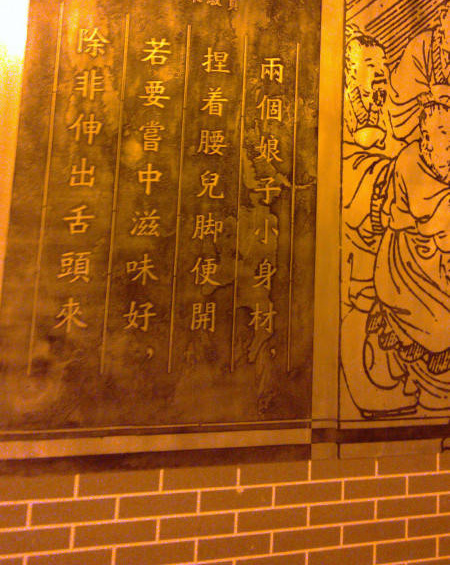 兩個娘子小身材，
捏着腰兒脚便開
若要嘗中滋味好，
除非伸出舌頭來